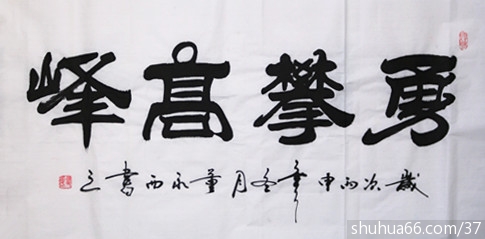 勇攀高峰
岁次丙申年冬月董永西書
shuhua66.com/37